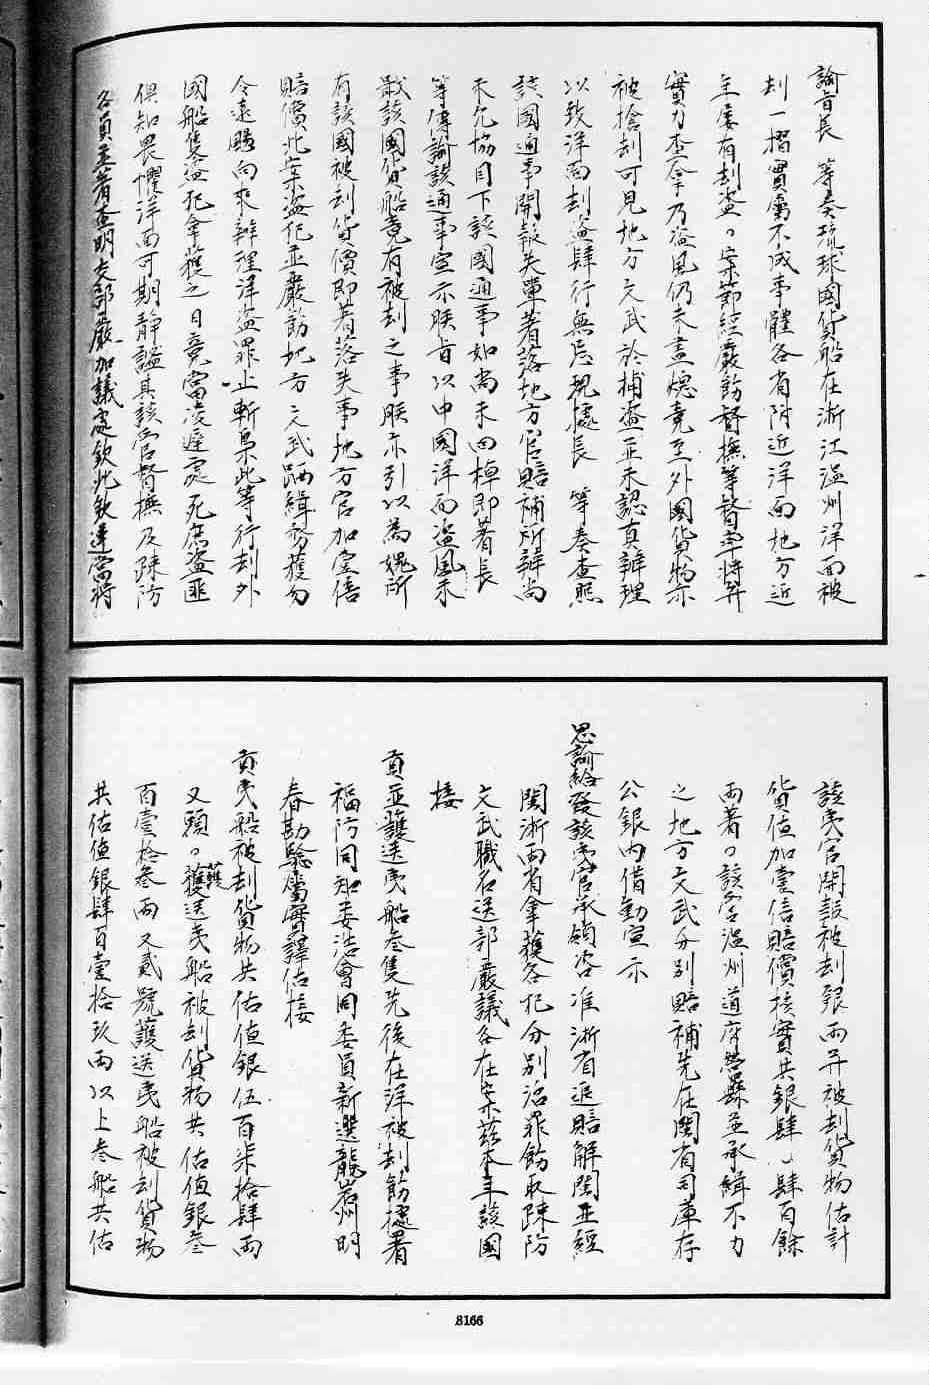 諭旨長 等奏琉球國貨船在浙江温州洋面被
刦一摺實屬不成事體各省附近洋面地方近
年屢有刦盗〻案節經嚴飭督撫等督率將弁
實力查拿乃盗風仍未盡熄竟至外國貨物亦
被搶刦可見地方文武於捕盗並未認真辦理
以致洋面刦盗肆行無忌現據長 等奏查照
該國通事開報失單著落地方官賠補所辦尚
未允協目下該國通事如尚未回棹即著長
等傳諭該通事宣示朕旨以中國洋面盗風未
戢該國貨船竟有被刦之事朕亦引以為媿所
有該國被刦貨價即著落失事地方官加壹倍
賠償此案盗犯並嚴飭地方文武跴緝務獲勿
令遠颺向來辦理洋盗罪止斬梟此等行刦外
國船隻盗犯拿獲之日竟當凌遲處死庶盗匪
俱知畏懼洋面可期靜謐其該管督撫及疎防
各員並著查明交部嚴加議處欽此欽遵當將
該夷官開報被刦銀兩并被刦貨物估計
貨值加壹倍賠價核實共銀肆〻肆百餘
兩著〻該管温州道府營縣並承緝不力
之地方文武分別賠補先在閩省司庫存
公銀內借動宣示
恩諭給發該夷官承領咨准浙省追賠解閩並經
閩浙兩省拿獲各犯分別治罪飭取疎防
文武職名送部嚴議各在案茲本年該國
接
貢並護送夷船叁隻先後在洋被刦飭據署
福防同知委浩會同委員新選龍岩州明
春勘騐屬實譯估接
貢夷船被刦貨物共估值銀伍百柒拾肆兩
又頭〻護送夷船被刦貨物共估值銀叁
百壹拾叁兩又貳號護送夷船被刦貨物
共估值銀肆百壹拾玖兩以上叁船共估
8166